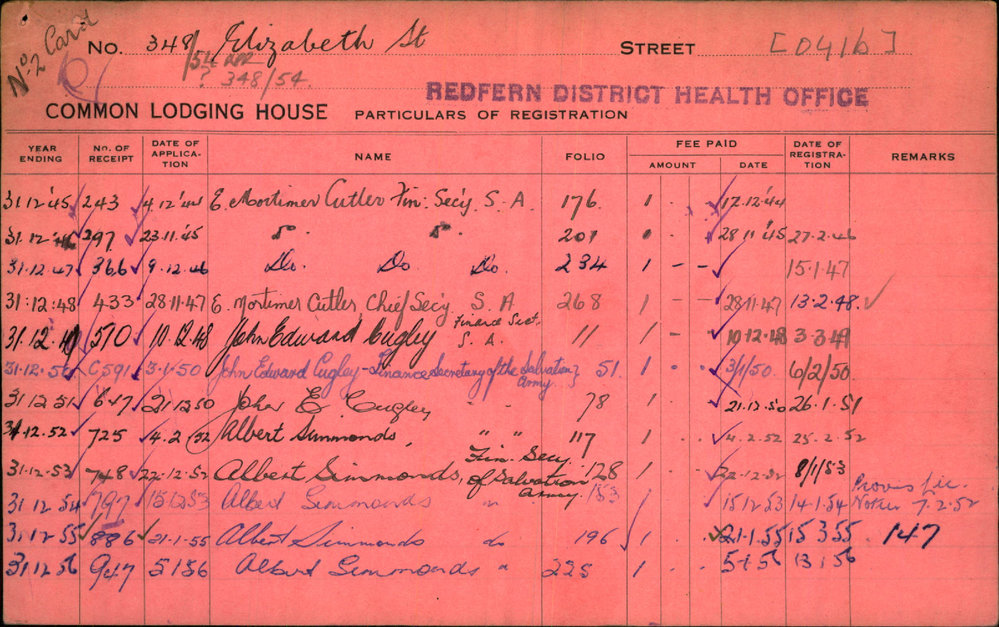 No. 2 Card
No. 348/54 Elizabeth St STREET [0416]
? 348/54.
REDFERN DISTRICT HEALTH OFFICE
COMMON LODGING HOUSE PARTICULARS OF REGISTRATION
YEAR ENDING No. OF RECEIPT DATE OF APPLICA-TION NAME FOLIO FEE PAID AMOUNT DATE DATE OF REGISTRA-TION REMARKS
31.12.'45 243 4.12.'44 E. Mortimer Cutler Fin. Sec'y. S. A. 176. 1 . - 12.12.'44
31.12.'46 297 23.11.'45 " " 201 1 . . 28.11.'45 27.2.46
31.12.47 366 9.12.46 Do. Do Do. 234 1 - - 15.1.47
31.12.48 433 28.11.47 E. Mortimer Cutler, Chief Sec'y S. A 268 1 - - 28.11.47 13.2.48.
31.12.49 510 10.12.48 John Edward Cugley Finance Sect. S. A. 11 1 - 10.12.48 3.3.49
31.12.50 C591 3.1.50 John Edward Cugley - Finance Secretary of the Salvation Army } 51. 1 . . 3/1/50. 6/2/50
31.12.51 647 21.12.50 John E. Cugley " " 78 1 . . 21.12.50 26.1.51
31.12.52 725 4.2.52 Albert Simmonds, " " 117 1 . . 4.2.52 25.2.52
31.12.53 748 22.12.52 Albert Simmonds, Fin. Secy. of Salvation Army. 128 1 . . 22.12.52 8/1/53
31.12.54 797 15.12.53 Albert Simmonds " 153 1 . . 15.12.53 14.1.54 Provis Lic. Notice 7.2.52
31.12.55 886 21.1.55 Albert Simmonds do 196 1 . . 21.1.55 15.3.55 147
31.12.56 947 5.1.56 Albert Simmonds " 225 1 . . 5.1.56 13.1.56